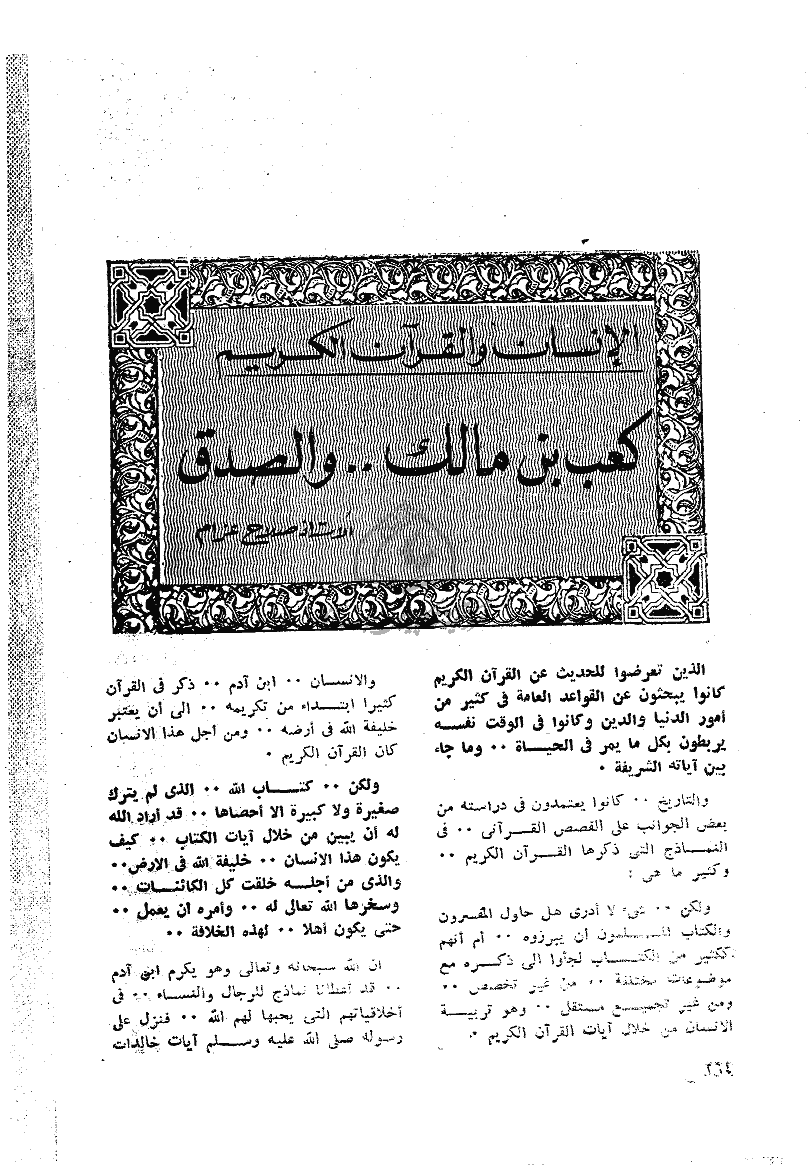 الإنسان والقرآن الكريم
كعب بن مالك .. والصدق
الأستاذ صلاح عزام
الذين تعرضوا للحديث عن القرآن الكريم
كانوا يبحثون عن القواعد العامة فى كثير من
أمور الدنيا والدين وكانوا فى الوقت نفسه
يربطون بكل ما يمر فى الحياة ٠٠ وما جاء
بين آياته الشريفة ٠
والتاريخ ٠٠ كانوا يعتمدون فى دراسته من
بعض الجوانب على القصص القرآنى ٠٠ فى
النماذج التى ذكرها القرآن الكريم ٠٠
وكثير ما هى :
ولكن ٠٠ شىء لا أدرى هل حاول المفسرون
والكتاب المسلمون أن يبرزوه ٠٠ أم أنهم
ككثير من الكتاب لجأوا الى ذكره مع
موضوعات مختلفة ٠٠ من غير تخصص ٠٠
ومن غير تجميع مستقل ٠٠ وهو تربية
الانسان من خلال آيات القرآن الكريم ٠
والانسان ٠٠ ابن آدم ٠٠ ذكر فى القرآن
كثيرا ابتداء من تكريمه ٠٠ الى أن يعتبر
خليفة الله فى أرضه ٠٠ ومن أجل هذا الانسان
كان القرآن الكريم ٠
ولكن ٠٠ كتاب الله ٠٠ الذى لم يترك
صغيرة ولا كبيرة الا أحصاها ٠٠ قد أراد الله
له أن يبين من خلال آيات الكتاب ٠٠ كيف
يكون هذا الانسان ٠٠ خليفة الله فى الارض٠٠
والذى من أجله خلقت كل الكائنات ٠٠
وسخرها الله تعالى له ٠٠ وأمره ان يعمل ٠٠
حتى يكون أهلا ٠٠ لهذه الخلافة ٠٠
ان الله سبحانه وتعالى وهو يكرم ابن آدم
٠٠ قد أعطانا نماذج للرجال والنساء ٠٠ فى
أخلاقياتهم التى يحبها لهم الله ٠٠ فنزل على
رسوله صلى الله عليه وسلم آيات خالدات
٢٦٤